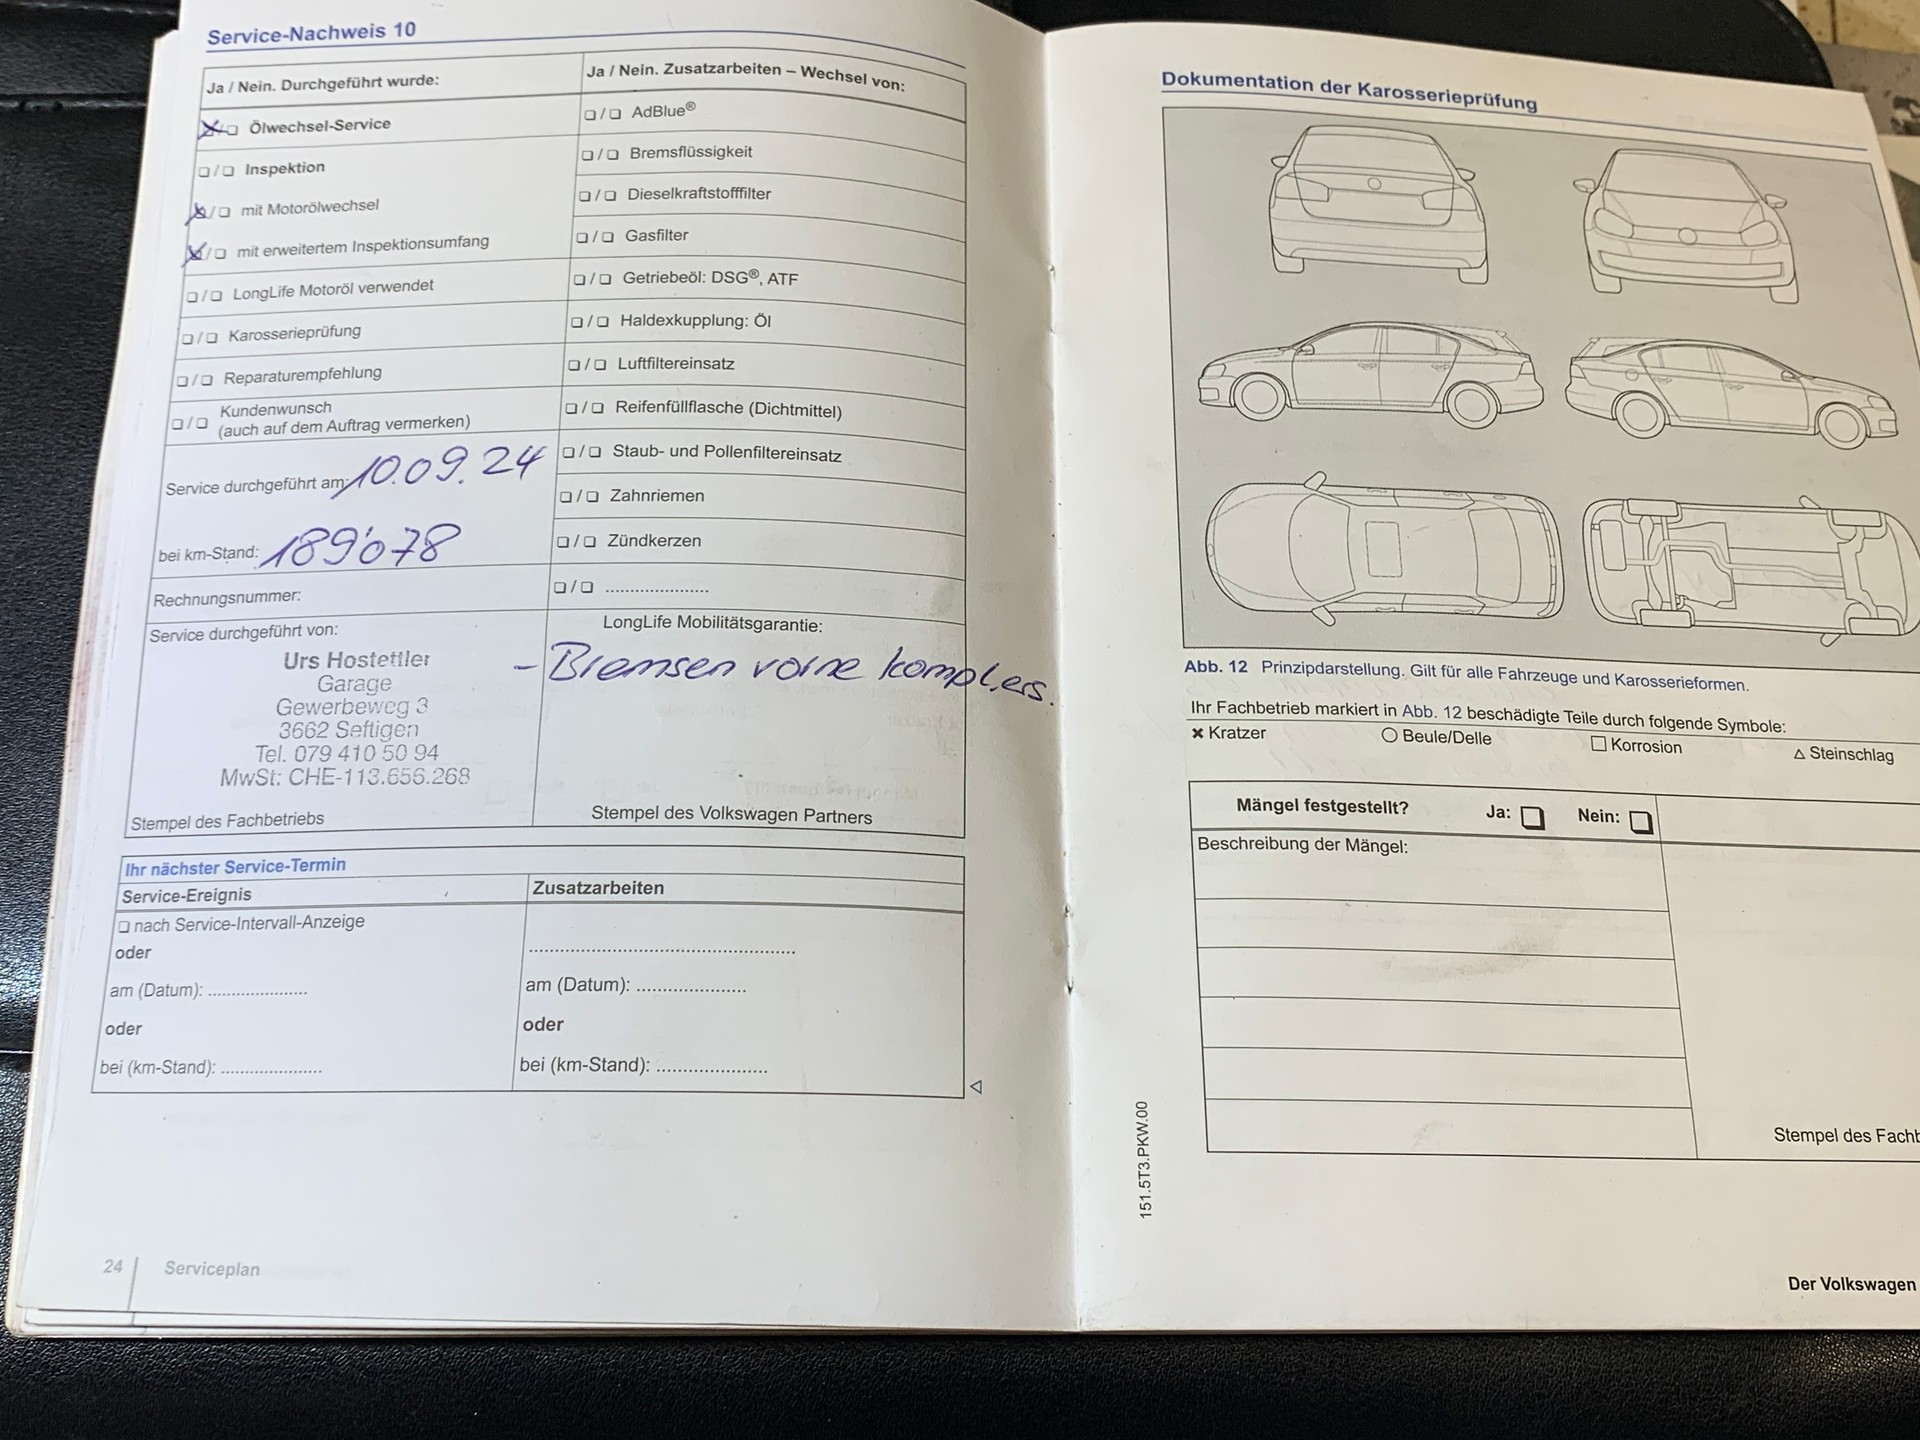 Service-Nachweis 10
Ja / Nein. Durchgeführt wurde:
Ölwechsel-Service
Inspektion
mit Motorölwechsel
mit erweitertem Inspektionsumfang
LongLife Motoröl verwendet
Karosserieprüfung
Reparaturempfehlung
Kundenwunsch
(auch auf dem Auftrag vermerken)
Service durchgeführt am: 10.09.24
bei km-Stand: 189'078
Rechnungsnummer:
Service durchgeführt von:
Urs Hostettler
Garage
Gewerbeweg 3
3662 Seftigen
Tel. 079 410 50 94
MwSt: CHE-113.656.268
Stempel des Fachbetriebs
Ja / Nein. Zusatzarbeiten – Wechsel von:
AdBlue®
Bremsflüssigkeit
Dieselkraftstofffilter
Gasfilter
Getriebeöl: DSG®, ATF
Haldexkupplung: Öl
Luftfiltereinsatz
Reifenfüllflasche (Dichtmittel)
Staub- und Pollenfiltereinsatz
Zahnriemen
Zündkerzen
LongLife Mobilitätsgarantie:
- Bremsen vorne
Stempel des Volkswagen Partners
Ihr nächster Service-Termin
Service-Ereignis
nach Service-Intervall-Anzeige
oder
am (Datum):
oder
bei (km-Stand):
Zusatzarbeiten
am (Datum):
oder
bei (km-Stand):
24 Serviceplan
Dokumentation der Karosserieprüfung
Abb. 12 Prinzipdarstellung. Gilt für alle Fahrzeuge und Karosserieformen.
Ihr Fachbetrieb markiert in Abb. 12 beschädigte Teile durch folgende Symbole:
× Kratzer ○ Beule/Delle □ Korrosion △ Steinschlag
Mängel festgestellt? Ja: Nein:
Beschreibung der Mängel:
Stempel des Facht
151.5T3.PKW.00
Der Volkswagen